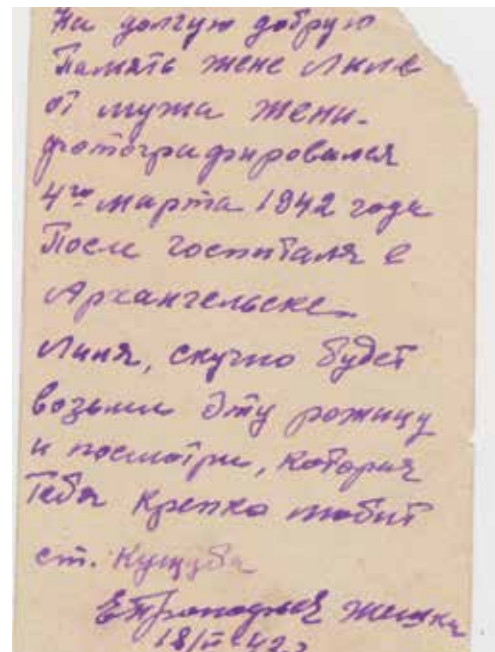 На долгую добрую
Память жене Лиле
от мужа Жени.
фотографировался
4го марта 1942 года
После госпиталя в
Архангельске
Лиля, скучно будет
возьми Эту рожицу
и посмотри, которая
Тебя крепко любит
ст. Кущуба
Женька
18/II-42г